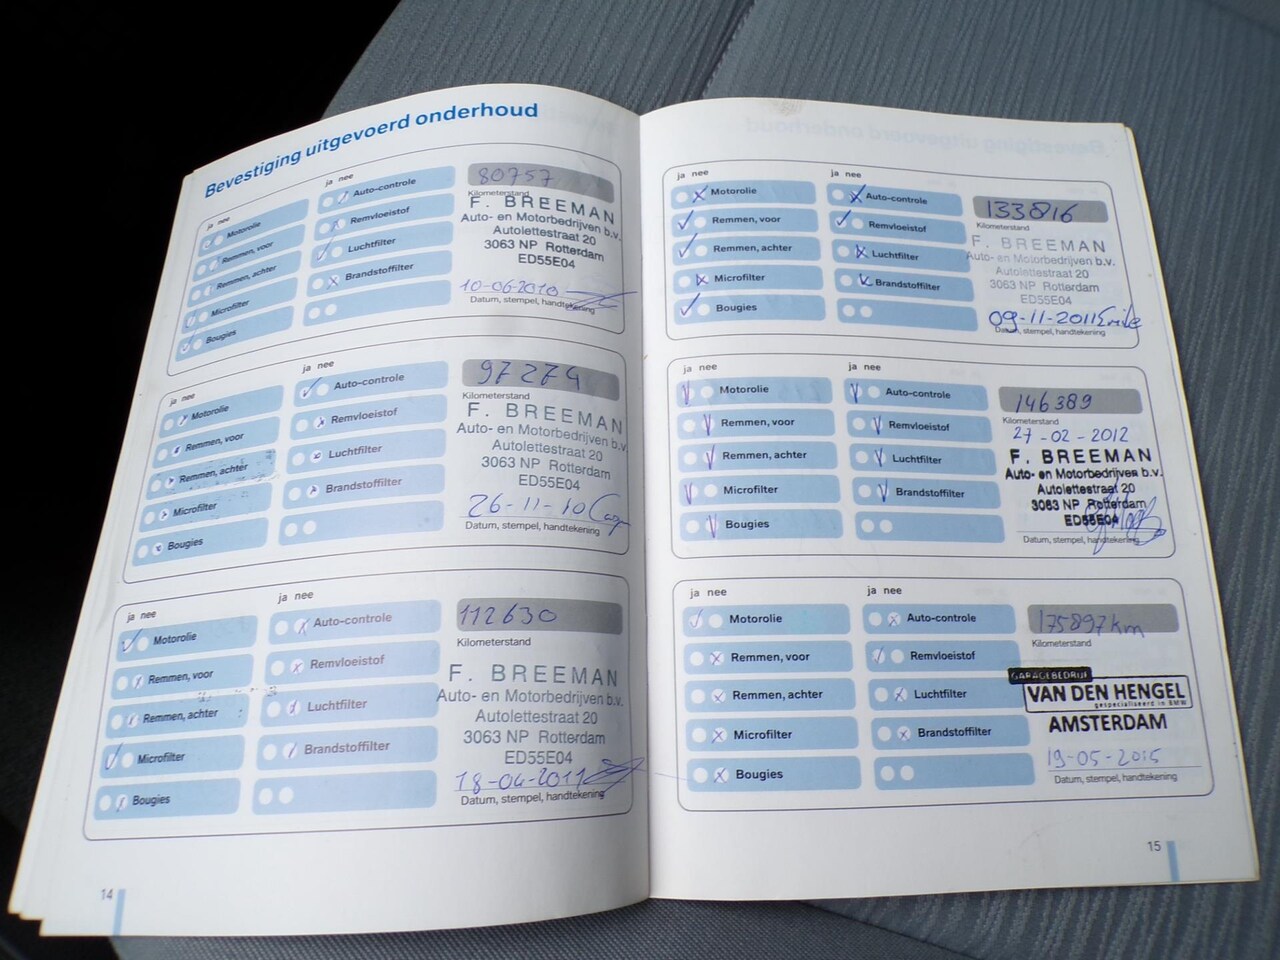 Bevestiging uitgevoerd onderhoud
ja nee
ja nee
Motorolie
Remmen, voor
Remmen, achter
Microfilter
Bougies
Auto-controle
Remvloeistof
Luchtfilter
Brandstoffilter
80757
Kilometerstand
F. BREEMAN
Auto- en Motorbedrijven b.v.
Autolettestraat 20
3063 NP Rotterdam
ED55E04
10-06-2010
Datum, stempel, handtekening
ja nee
ja nee
Motorolie
Remmen, voor
Remmen, achter
Microfilter
Bougies
Auto-controle
Remvloeistof
Luchtfilter
Brandstoffilter
97274
Kilometerstand
F. BREEMAN
Auto- en Motorbedrijven b.v.
Autolettestraat 20
3063 NP Rotterdam
ED55E04
26-11-10
Datum, stempel, handtekening
ja nee
ja nee
Motorolie
Remmen, voor
Remmen, achter
Microfilter
Bougies
Auto-controle
Remvloeistof
Luchtfilter
Brandstoffilter
112630
Kilometerstand
F. BREEMAN
Auto- en Motorbedrijven b.v.
Autolettestraat 20
3063 NP Rotterdam
ED55E04
18-04-2011
Datum, stempel, handtekening
14
ja nee
ja nee
Motorolie
Remmen, voor
Remmen, achter
Microfilter
Bougies
Auto-controle
Remvloeistof
Luchtfilter
Brandstoffilter
133816
Kilometerstand
F. BREEMAN
Auto- en Motorbedrijven b.v.
Autolettestraat 20
3063 NP Rotterdam
ED55E04
09-11-2011
Datum, stempel, handtekening
ja nee
ja nee
Motorolie
Remmen, voor
Remmen, achter
Microfilter
Bougies
Auto-controle
Remvloeistof
Luchtfilter
Brandstoffilter
146389
Kilometerstand
27-02-2012
F. BREEMAN
Auto- en Motorbedrijven b.v.
Autolettestraat 20
3063 NP Rotterdam
ED55E04
Datum, stempel, handtekening
ja nee
ja nee
Motorolie
Remmen, voor
Remmen, achter
Microfilter
Bougies
Auto-controle
Remvloeistof
Luchtfilter
Brandstoffilter
175897 km
Kilometerstand
GARAGEBEDRIJF
VAN DEN HENGEL
gespecialiseerd in BMW
AMSTERDAM
19-05-2015
Datum, stempel, handtekening
15